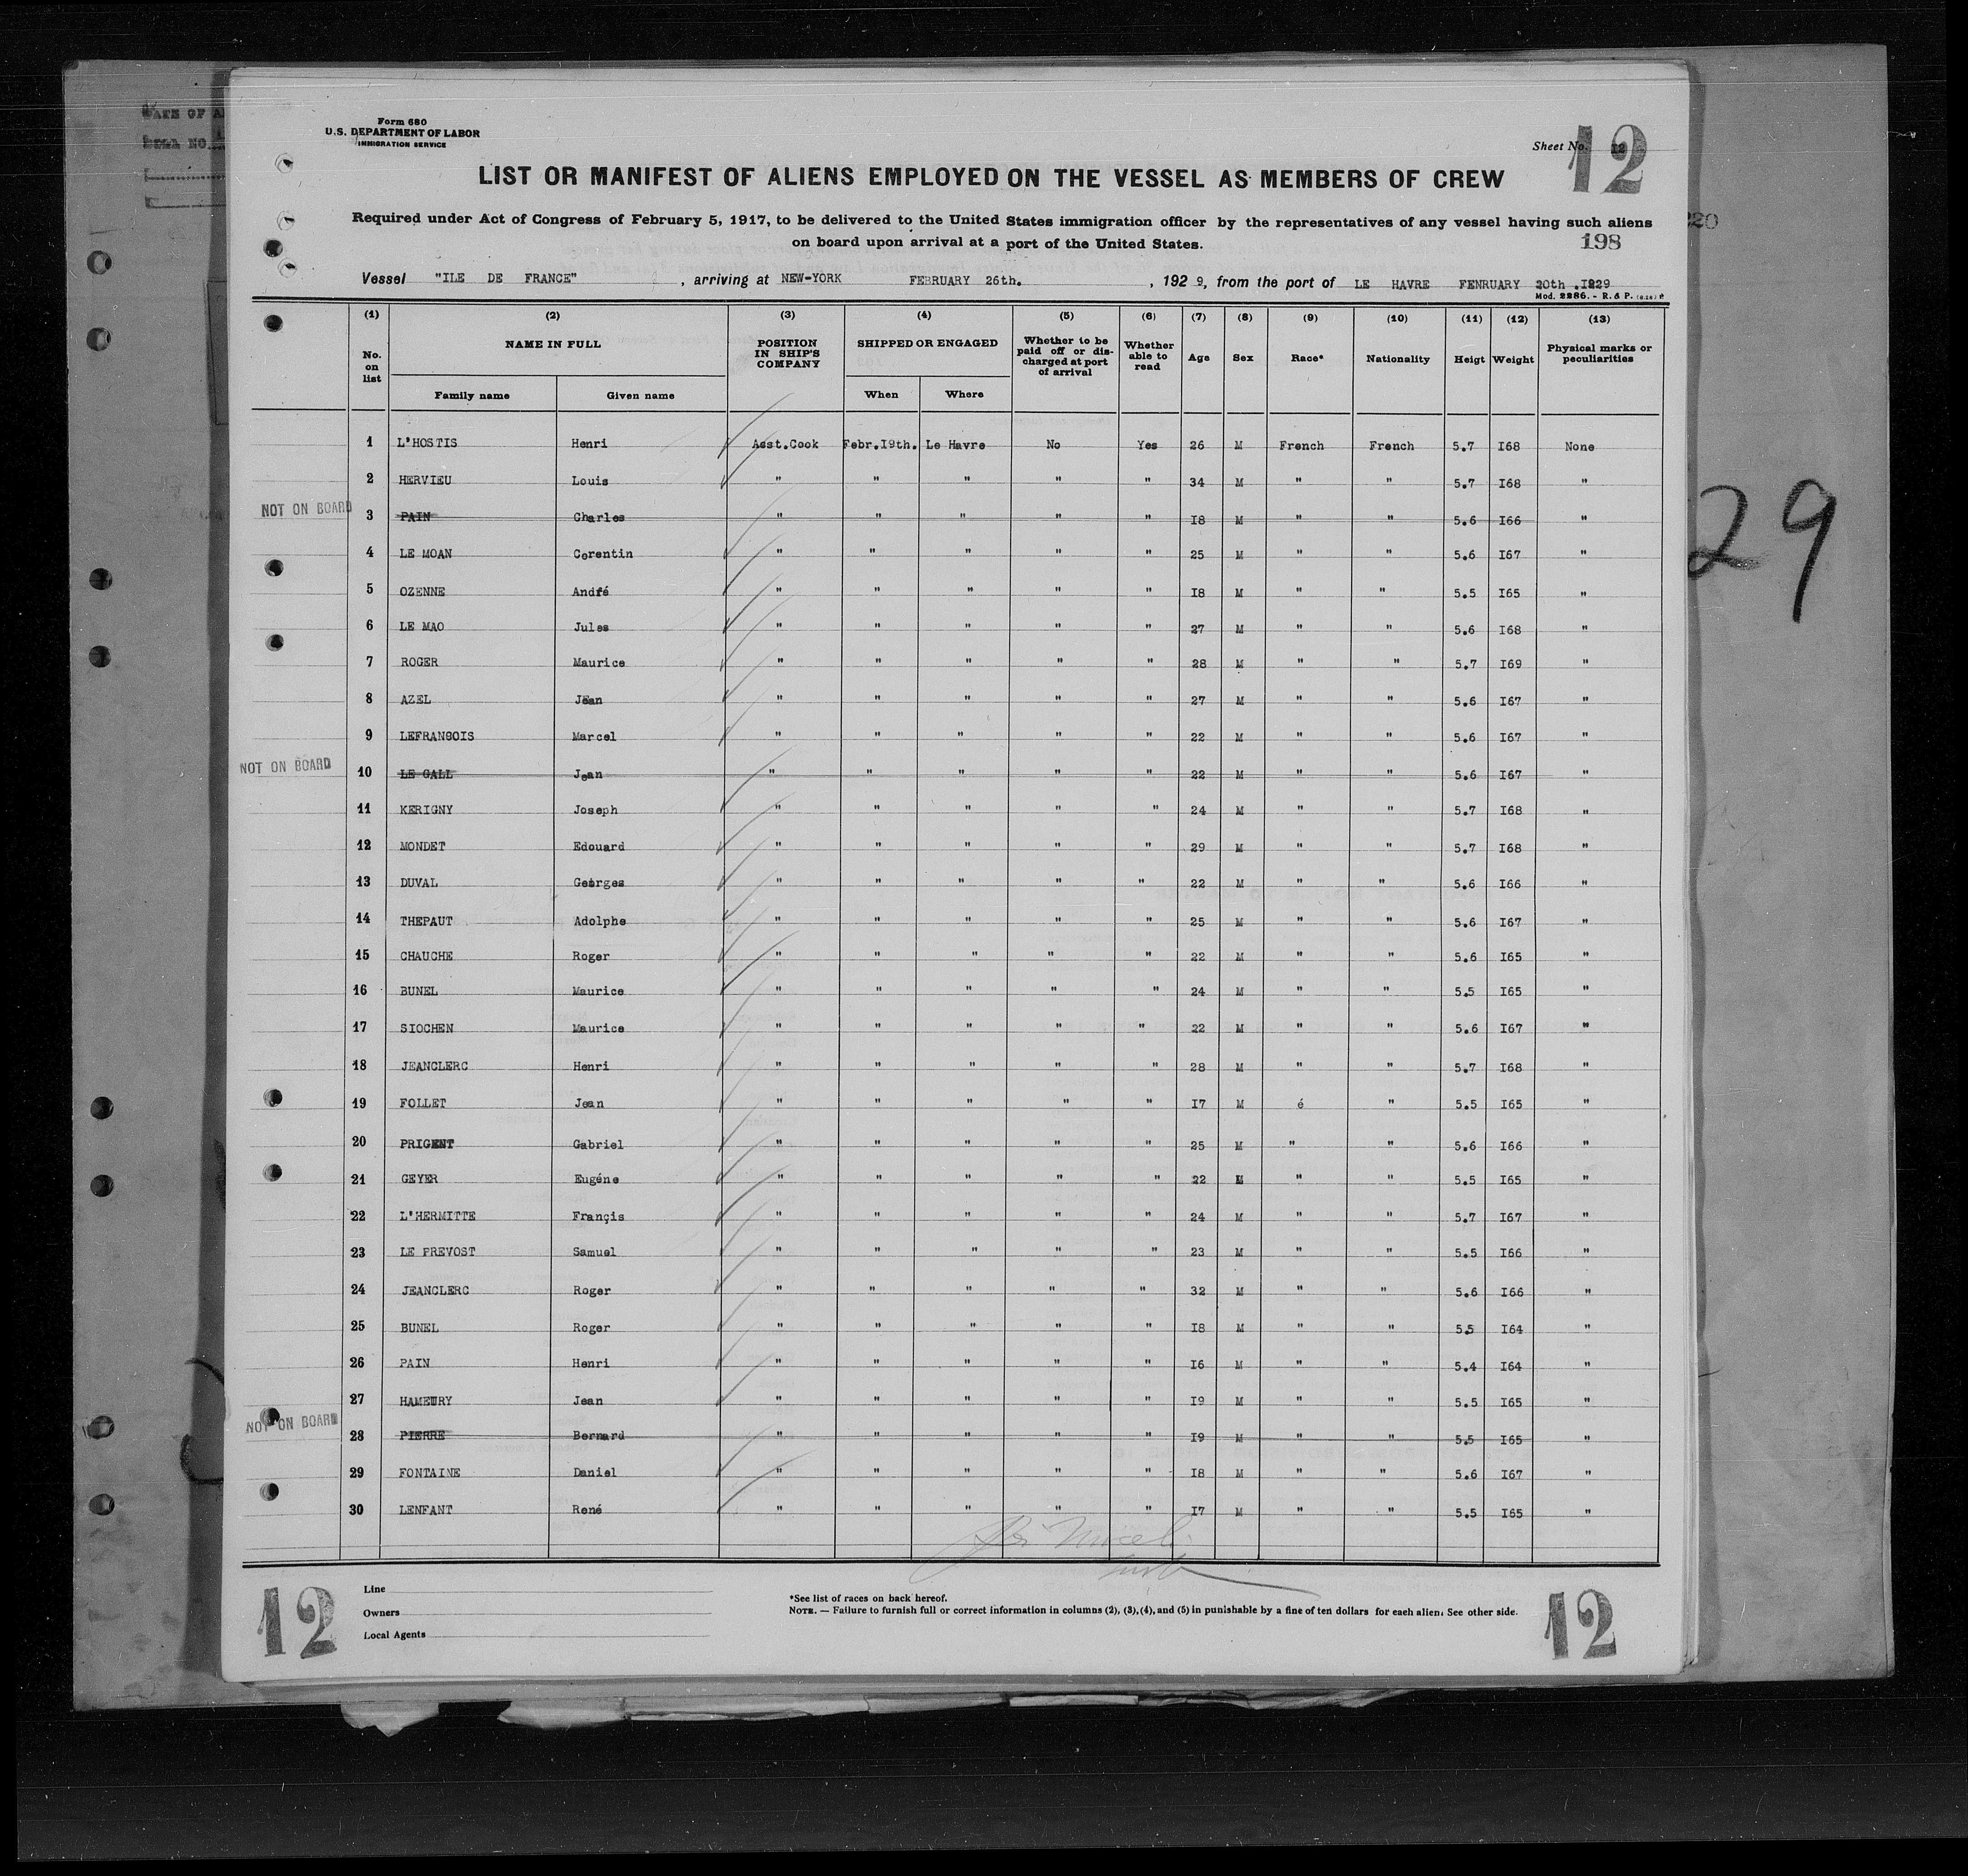 Form 680
U.S. DEPARTMENT OF LABOR
IMMIGRATION SERVICE
Sheet No. 12
12
LIST OR MANIFEST OF ALIENS EMPLOYED ON THE VESSEL AS MEMBERS OF CREW
Required under Act of Congress of February 5, 1917, to be delivered to the United States immigration officer by the representatives of any vessel having such aliens
on board upon arrival at a port of the United States.
198
Vessel "ILE DE FRANCE" , arriving at NEW-YORK FEBRUARY 26th. , 192 9, from the port of LE HAVRE FENRUARY 20th .I929
Mod. 2286. - R. & P.
(1) (2) (3) (4) (5) (6) (7) (8) (9) (10) (11) (12) (13)
No. on list NAME IN FULL Family name Given name POSITION IN SHIP'S COMPANY SHIPPED OR ENGAGED When Where Whether to be paid off or discharged at port of arrival Whether able to read Age Sex Race* Nationality Heigt Weight Physical marks or peculiarities
1 L'HOSTIS Henri Asst.Cook Febr.I9th. Le Havre No Yes 26 M French French 5.7 I68 None
2 HERVIEU Louis " " " " " 34 M " " 5.7 I68 "
NOT ON BOARD 3 PAIN Charles " " " " " I8 M " " 5.6 I66 "
4 LE MOAN Corentin " " " " " 25 M " " 5.6 I67 "
5 OZENNE André " " " " " I8 M " " 5.5 I65 "
6 LE MAO Jules " " " " " 27 M " " 5.6 I68 "
7 ROGER Maurice " " " " " 28 M " " 5.7 I69 "
8 AZEL Jean " " " " " 27 M " " 5.6 I67 "
9 LEFRANCOIS Marcel " " " " " 22 M " " 5.6 I67 "
NOT ON BOARD 10 LE GALL Jean " " " " " 22 M " " 5.6 I67 "
11 KERIGNY Joseph " " " " " 24 M " " 5.7 I68 "
12 MONDET Edouard " " " " " 29 M " " 5.7 I68 "
13 DUVAL Georges " " " " " 22 M " " 5.6 I66 "
14 THEPAUT Adolphe " " " " " 25 M " " 5.6 I67 "
15 CHAUCHE Roger " " " " " 22 M " " 5.6 I65 "
16 BUNEL Maurice " " " " " 24 M " " 5.5 I65 "
17 SIOCHEN Maurice " " " " " 22 M " " 5.6 I67 "
18 JEANCLERC Henri " " " " " 28 M " " 5.7 I68 "
19 FOLLET Jean " " " " " I7 M é " 5.5 I65 "
20 PRIGENT Gabriel " " " " " 25 M " " 5.6 I66 "
21 GEYER Eugéne " " " " " 22 M " " 5.5 I65 "
22 L'HERMITTE Françis " " " " " 24 M " " 5.7 I67 "
23 LE PREVOST Samuel " " " " " 23 M " " 5.5 I66 "
24 JEANCLERC Roger " " " " " 32 M " " 5.6 I66 "
25 BUNEL Roger " " " " " I8 M " " 5.5 I64 "
26 PAIN Henri " " " " " I6 M " " 5.4 I64 "
27 HAMEURY Jean " " " " " I9 M " " 5.5 I65 "
NOT ON BOARD 28 PIERRE Bernard " " " " " I9 M " " 5.5 I65 "
29 FONTAINE Daniel " " " " " I8 M " " 5.6 I67 "
30 LENFANT René " " " " " I7 M " " 5.5 I65 "
Line
Owners
Local Agents
*See list of races on back hereof.
NOTE. — Failure to furnish full or correct information in columns (2), (3), (4), and (5) in punishable by a fine of ten dollars for each alien. See other side.
12
12
29